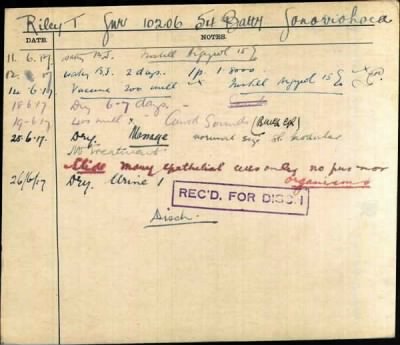 Riley T Gnr 10206 Batty Gonorrhoea
DATE. NOTES.
11. 6. 17 Instill Argyrol 15%
12. 2 days. 1p. 1-8000
14. 6. 17 Vaccine 200 mill Instill Argyrol 15%
18.6.17 Dry 6-7 days.
19-6-17 mill x Curved Sounds
20.6.17. Dry. Massage normal size nodular
No treatment.
Slide many epithelial cells only no pus nor
organisms
26/6/17 Dry. Urine 1
REC'D. FOR DISCH
Disch.